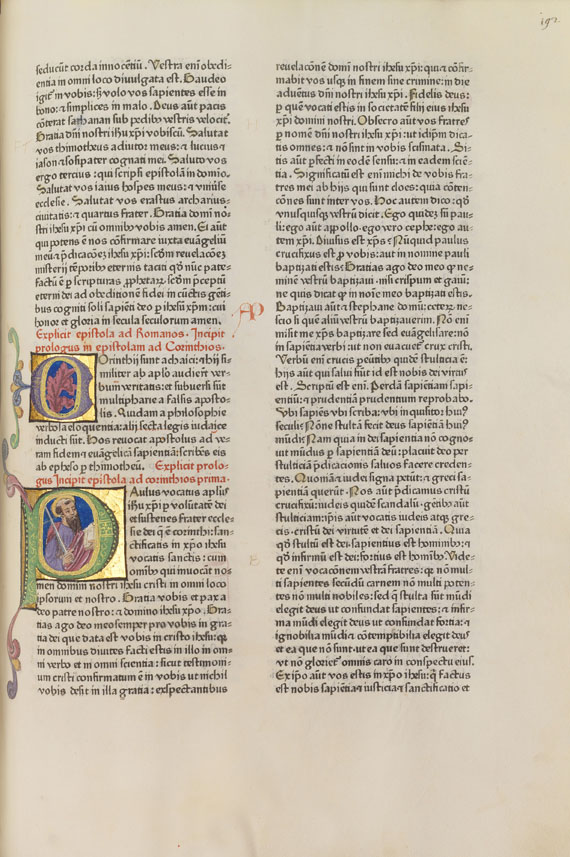 192
seducūt corda innocētiū. Vestra enī obedi=
entia in omni loco diuulgata est. Gaudeo
igit̄ in vobis: sꝫ volo vos sapientes esse in
bono: ⁊ simplices in malo. Deus aūt pacis
cōterat sathanan sub pedibꝰ vestris velocit̄.
Gratia dn̄i nostri ihū xp̄i vobiscū. Salutat
vos thimotheus adiutor meus: ⁊ lucius ⁊
iason ⁊ sosipater cognati mei. Saluto vos
ego tercius: qui scripsi epistolā in dom̄io.
Salutat vos iaius hospes meus: ⁊ vniūse
ecclesie. Salutat vos erastus archarius=
ciuitatis: ⁊ quartus frater. Gratia domī no=
stri ihū xp̄i cū omnibꝰ vobis amen. Ei aūt
qui potens ē vos cōfirmare iuxta euāgeliū
meū ⁊ p̄dicacōeꝫ ihū xp̄i: scd̄m reuelacōeꝫ
misterij tēporibꝰ eternis taciti qd̄ nūc pate=
factū ē ꝑ scripturas ꝓphetaꝝ scd̄m p̄ceptū
eterni dei ad obeditionē fidei in cūctis gēti=
bus cogniti soli sapiēti deo ꝑ ihesū xp̄m: cui
honor et gloria in secula seculorum amen.
Explicit epistola ad Romanos. Incipit
prologus in epistolam ad Corinthios.
Corinthij sunt achaici: ⁊ hij si=
militer ab apl̄o audierūt ver=
bum veritatis: et subuersi sūt
multipharie a falsis aposto=
lis. Quidam a philosophie
verbosa eloquentia: alij secta legis iudaice
inducti sūt. Hos reuocat apostolus ad ve=
ram fidem ⁊ euāgelicā sapientiā: scribēs eis
ab epheso ꝑ thimotheū. Explicit prolo=
gus Incipit epistola ad corinthios prima.
Paulus vocatus apl̄us
ihū xp̄i ꝑ volūtatē dei
et sustenes frater eccle=
sie dei q̄ ē corinthi: san=
ctificatis in xp̄o ihesu
vocatis sanctis: cum
omībꝰ qui inuocāt no=
men domini nostri ihesu cristi in omni loco
ipsorum et nostro. Gratia vobis et pax a
deo patre nostro: ⁊ domino ihesu xp̄o. Gra=
tias ago deo meo semper pro vobis in gra=
tia dei que data est vobis in cristo ihesu: qꝫ
in omnibus diuites facti estis in illo in om=
ni verbo et in omni scientia: sicut testimoni=
um cristi confirmatum ē in vobis ut nichil
vobis desit in illa gratia: exspectantibus
reuelacōnē domī nostri ihesu xp̄i: qui ⁊ cōfir=
mabit vos usqꝫ in finem sine crimine: in die
aduentus dn̄i nostri ihesu xp̄i. Fidelis deus:
ꝑ quē vocati estis in societatē filij eius ihesu
xp̄i domini nostri. Obsecro aūt vos fratres
ꝑ nomē dn̄i nostri ihesu xp̄i: ut idip̄m dica=
tis omnes: ⁊ nō sint in vobis scismata. Si=
tis aūt ꝑfecti in eodē sensu: ⁊ in eadem sciē=
tia. Significatū est enī michi de vobis fra=
tres mei ab hijs qui sunt cloes: quia cōten=
cōnes sunt inter vos. Hoc autem dico: qd̄
vnusquisqꝫ vestrū dicit. Ego quideꝫ sū pau=
li: ego aūt appollo: ego vero cephe: ego au=
tem xp̄i. Diuisus est xp̄s? Nūquid paulus
crucifixus est ꝓ vobis: aut in nomine pauli
baptizati estis? Gratias ago deo meo qꝫ ne=
minē vestrū baptizaui: nisi crispum et gaiū:
ne quis dicat qꝫ in noīe meo baptizati estis.
Baptizaui aūt ⁊ stephane domū: ceterꝫ ne=
scio si quē aliū vestrū baptizauerim. Nō enī
misit me xp̄s baptizare sed euāgelisare: nō
in sapiētia verbi: ut non euacuet̄ crux cristi.
Verbū enī crucis ꝑeūtibꝰ quidē stulticia ē:
hijs aūt qui salui fiūt id est nobis dei virtus
est. Scriptū est enī. Perdā sapiētiam sapi=
entiū: ⁊ prudentiā prudentium reprobabo.
Vbi sapiēs vbi scriba: vbi inquisitor huiꝰ
seculi? Nōne stultā fecit deus sapiētiā huiꝰ
mūdi? Nam quia in dei sapientia nō cogno=
uit mūdus ꝑ sapientiā deū: placuit deo per
stulticiā p̄dicacionis saluos facere creden=
tes. Quoniā ⁊ iudei signa petūt: ⁊ greci sa=
pientiā querūt. Nos aūt p̄dicamus cristū
crucifixū: iudeis quidē scandalū: gētibꝰ aūt
stulticiam: ip̄is aūt vocatis iudeis atqꝫ gre=
cis: cristū dei virtutē et dei sapientiā. Quia
qd̄ stultū est dei: sapientius est hominibꝰ: ⁊
qd̄ infirmū est dei: fortius est hominibꝰ. Vide=
te enī vocacōnem vestrā fratres: qꝫ nō mul=
ti sapientes secūdū carnem nō multi poten=
tes nō multi nobiles: sed q̄ stulta sūt mūdi
elegit deus ut confundat sapientes: ⁊ infir=
ma mūdi elegit deus ut confundat fortia: ⁊
ignobilia mūdi ⁊ cōtemptibilia elegit deus
et ea que nō sunt: ut ea que sunt destrueret:
vt nō gloriet̄ omnis caro in conspectu eius.
Ex ip̄o aūt vos estis in xp̄o ihesu: qꝫ factus
est nobis sapiētia ⁊ iusticia ⁊ sanctificatio et